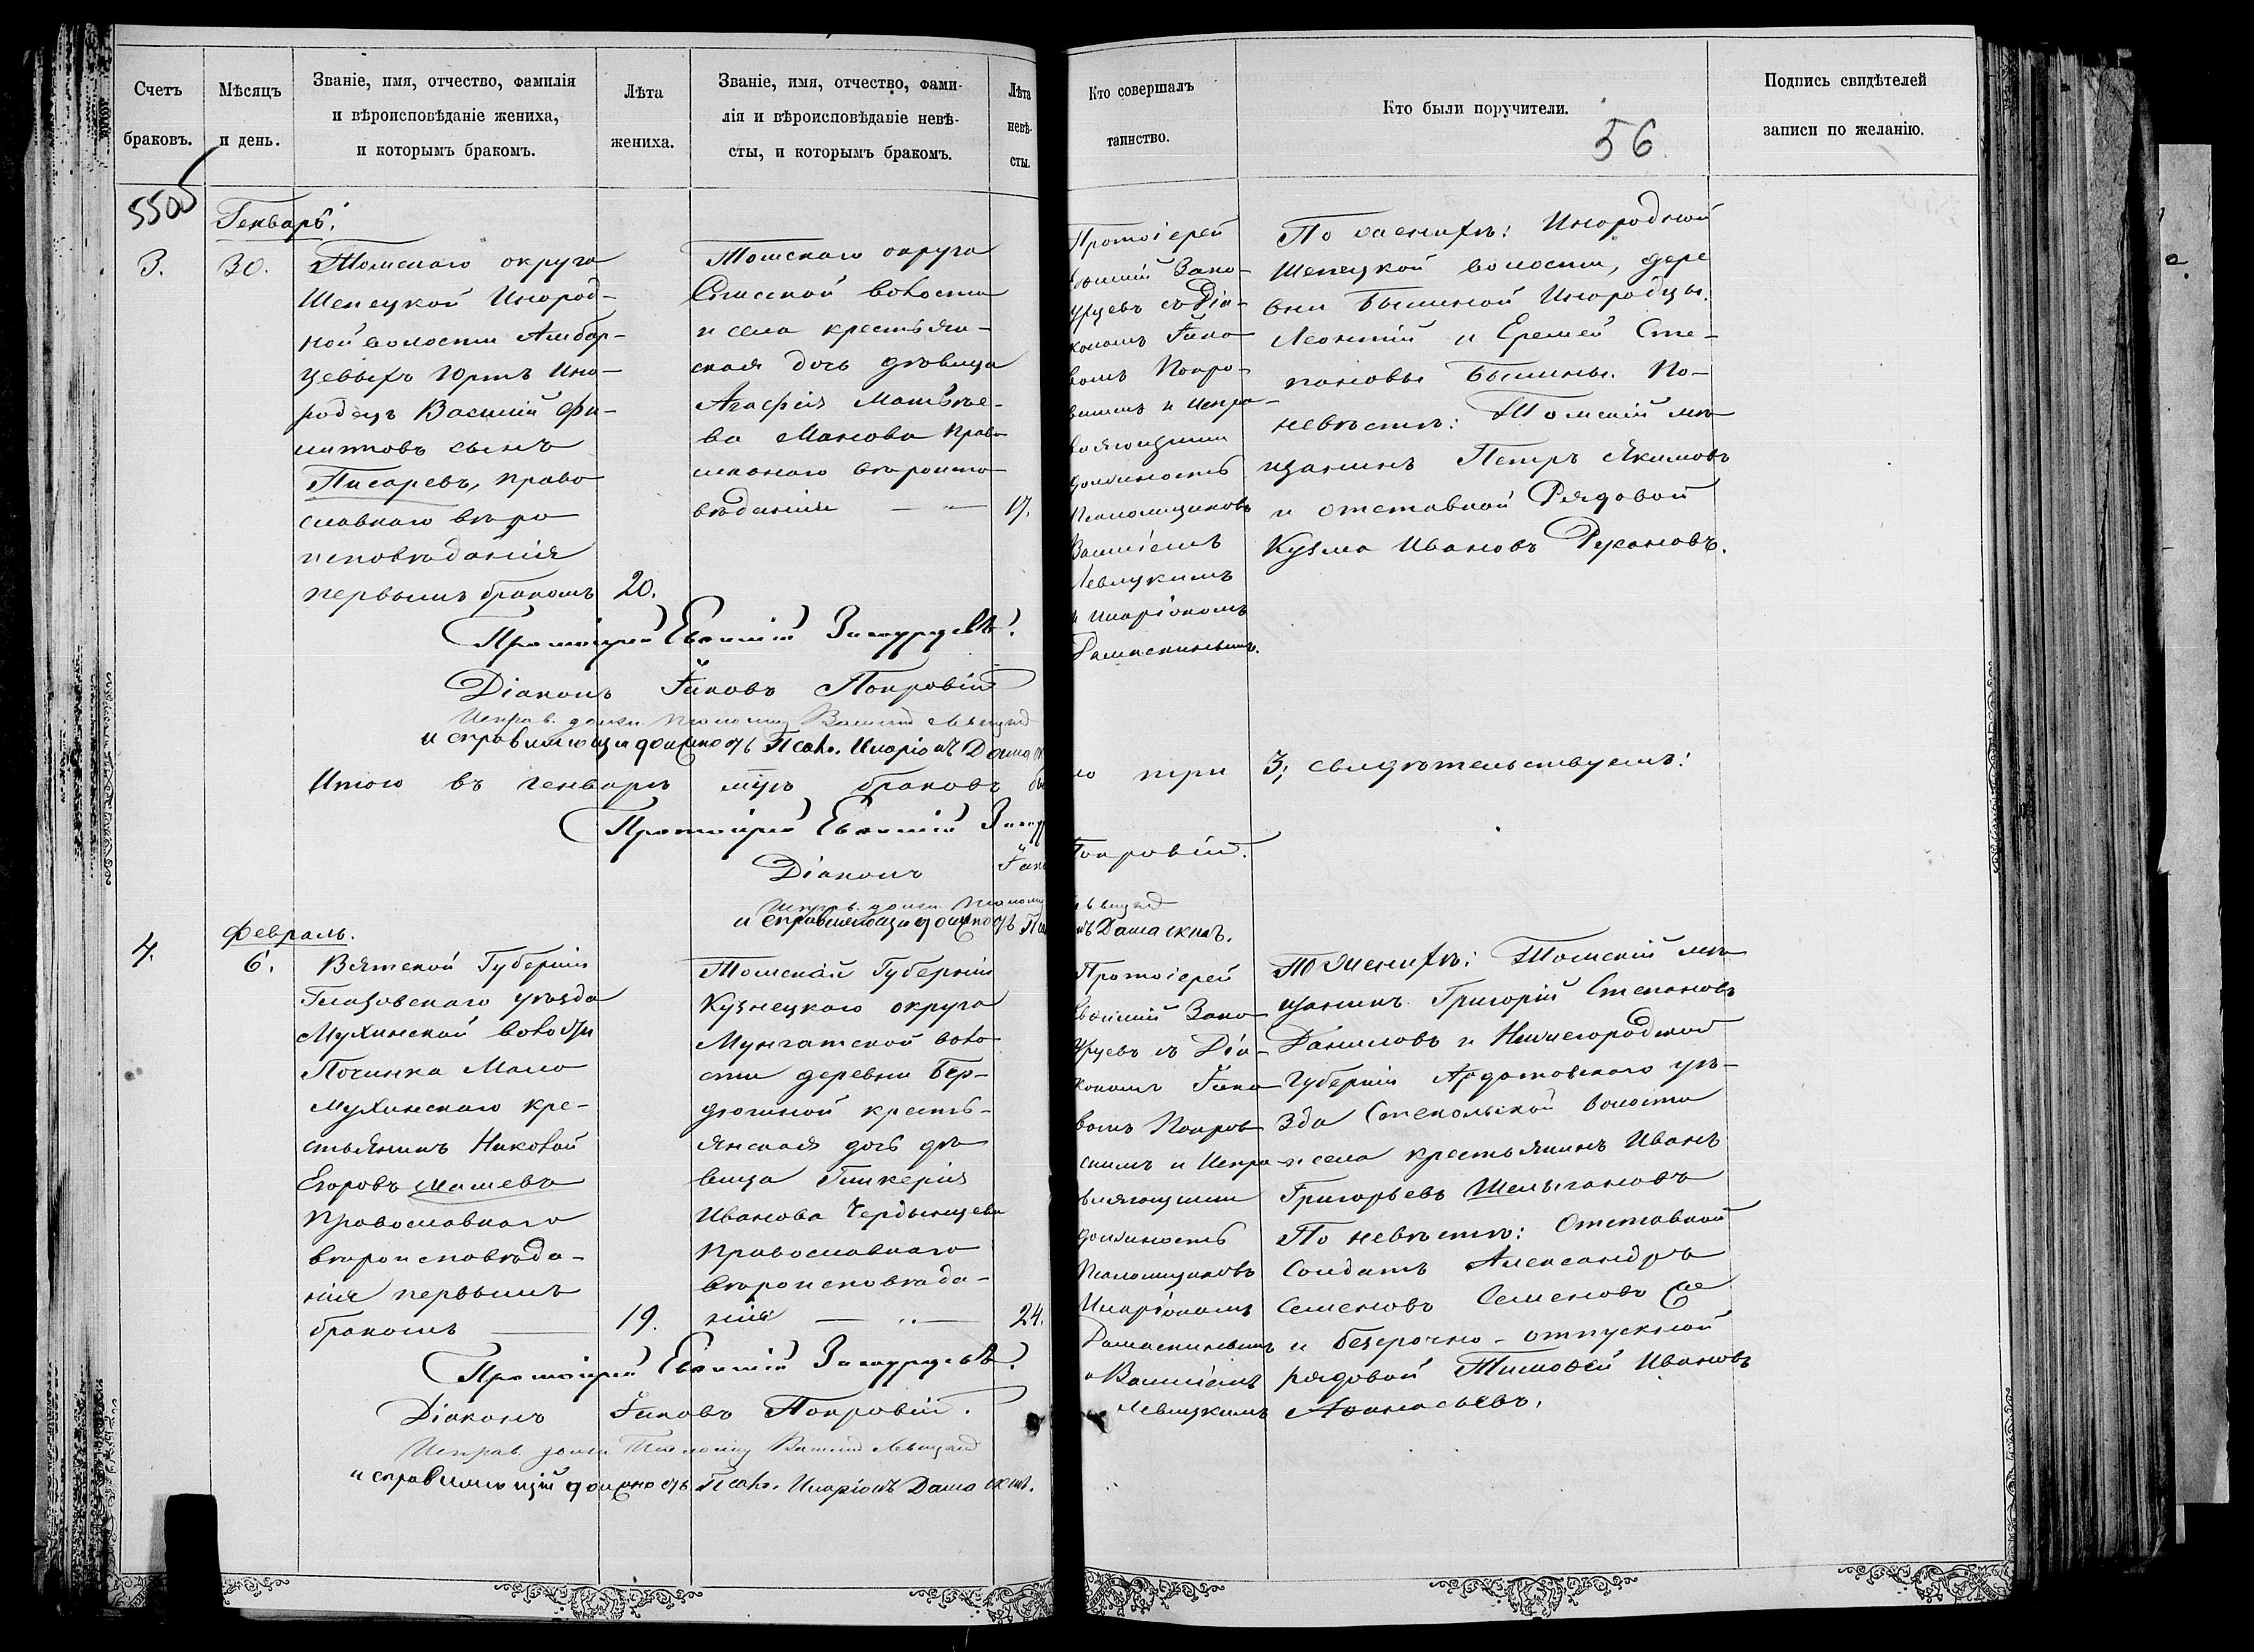 Счетъ
браковъ.
Мѣсяцъ
и день.
Званіе, имя, отчество, фамилія
и вѣроисповѣданіе жениха,
и которымъ бракомъ.
Лѣта
жениха.
Званіе, имя, отчество, фами-
лія и вѣроисповѣданіе невѣ-
сты, и которымъ бракомъ.
Лѣта
невѣ-
сты.
Кто совершалъ
таинство.
Кто были поручители.
56
Подпись свидѣтелей
записи по желанію.
Генварь.
3.
30.
Томскаго округа
Шепецкой Инород-
ной волости Амбар-
цевыхъ Юртъ Ино-
родецъ Василій Фи-
липповъ сынъ
Писаревъ, право
славнаго вѣро
исповѣданія
первымъ бракомъ
20.
Томскаго округа
Спасской волости
и села крестьян-
ская дочь дѣвица
Агафія Матвѣе-
ва Манова право
славнаго вѣроиспо
вѣданія
17.
Протоіерей
Евѳимій Зако-
урцевъ съ Діа-
кономъ Іако-
вомъ Покро-
вскимъ и Испра-
вляющими
должность
Псаломщиковъ
Василіемъ
Левицкимъ
и Иларіономъ
Дамаскинымъ.
По женихѣ: Инородной
Шепецкой волости, дере
вни Былиной Инородцы:
Леонтій и Еремей Сте-
пановы Былины. По
невѣстѣ: Томскій мѣ
щанинъ Петръ Якимовъ
и отставной Рядовой
Кузма Ивановъ Русановъ.
Протоіерей Евѳимій Закоурцевъ.
Діаконъ Іаковъ Покровскій
Исправ. долж. Псаломщ. Василій Левицкій
исправляющій должность Псал. Иларіонъ Дамаскинъ
Итого въ генварѣ мцѣ браковъ было три 3; свидѣтельствуемъ:
Протоіерей Евѳимій Закоурцевъ
Діаконъ Іаковъ Покровскій.
Исправ. долж. Псаломщ. Левицкій
исправляющій должность Дамаскинъ.
Февраль.
4.
6.
Вятской Губерніи
Глазовскаго уѣзда
Мухинской волости
Починка Мало
мухинскаго кре-
стьянинъ Николай
Егоровъ Машевъ
Православнаго
вѣроисповѣда-
нія первымъ
бракомъ
19.
Томской Губерніи
Кузнецкаго округа
Мунгатской воло-
сти деревни Бер-
дюгиной кресть-
янская дочь дѣ
вица Гликерія
Иванова Чердынцева
Православнаго
вѣроисповѣда-
нія
24.
Протоіерей
Евѳимій Зако
урцевъ съ Діа-
кономъ Іако
вомъ Покров
скимъ и Испра
вляющими
должность
Псаломщиковъ
Иларіономъ
Дамаскинымъ
и Василіемъ
Левицкимъ
По женихѣ: Томскій мѣ
щанинъ Григорій Степановъ
Даниловъ и Нижегородской
Губерніи Ардатовскаго уѣ-
зда Стекольской волости
и села крестьянинъ Иванъ
Григорьевъ Шелыгановъ
По невѣстѣ: Отставной
Солдатъ Александръ
Семеновъ Семеновъ же
и безсрочно-отпускной
рядовой Тимоѳей Ивановъ
Аѳанасьевъ.
Протоіерей Евѳимій Закоурцевъ.
Діаконъ Іаковъ Покровскій.
Исправ. долж. Псаломщ. Василій Левицкій
исправляющій должность Псал. Иларіонъ Дамаскинъ.